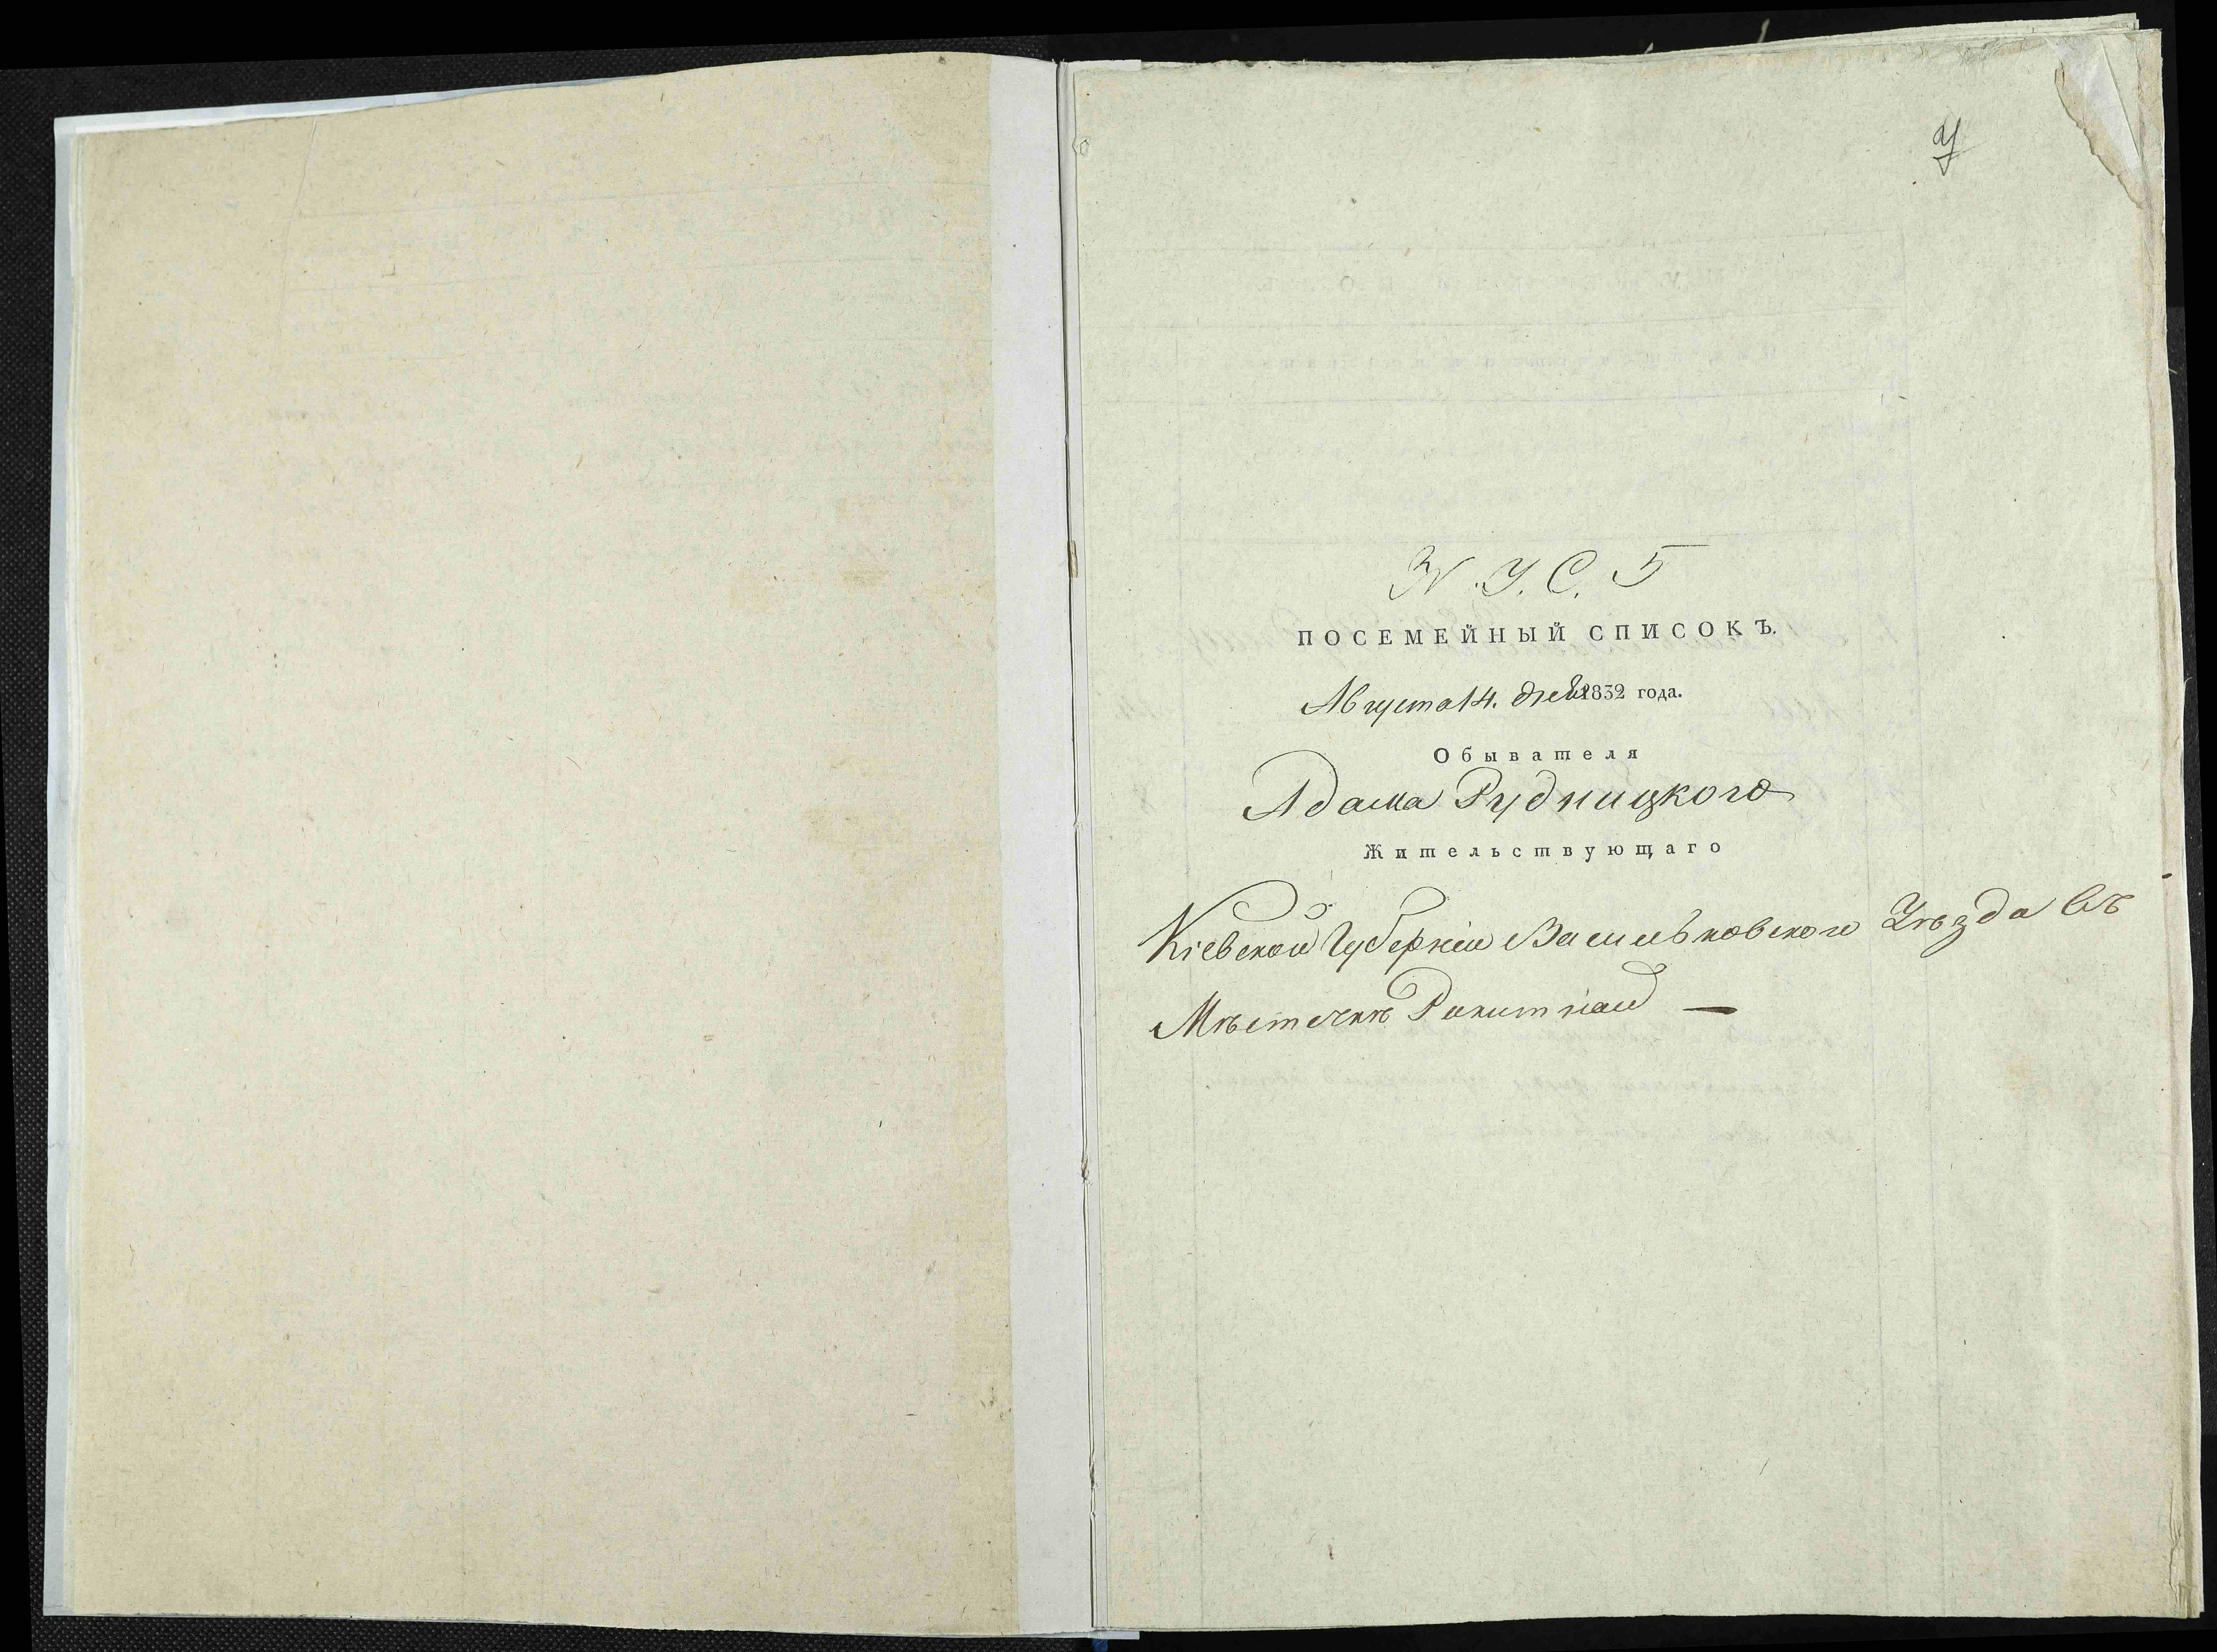 N. У. С. 5
ПОСЕМЕЙНЫЙ СПИСОКЪ.
Августа 14. дня 1832 года.
Обывателя
Адама Рудницкого
Жительствующаго
Кіевской Губерніи Васильковского Уѣзда въ
Мѣстечкѣ Ракитной —